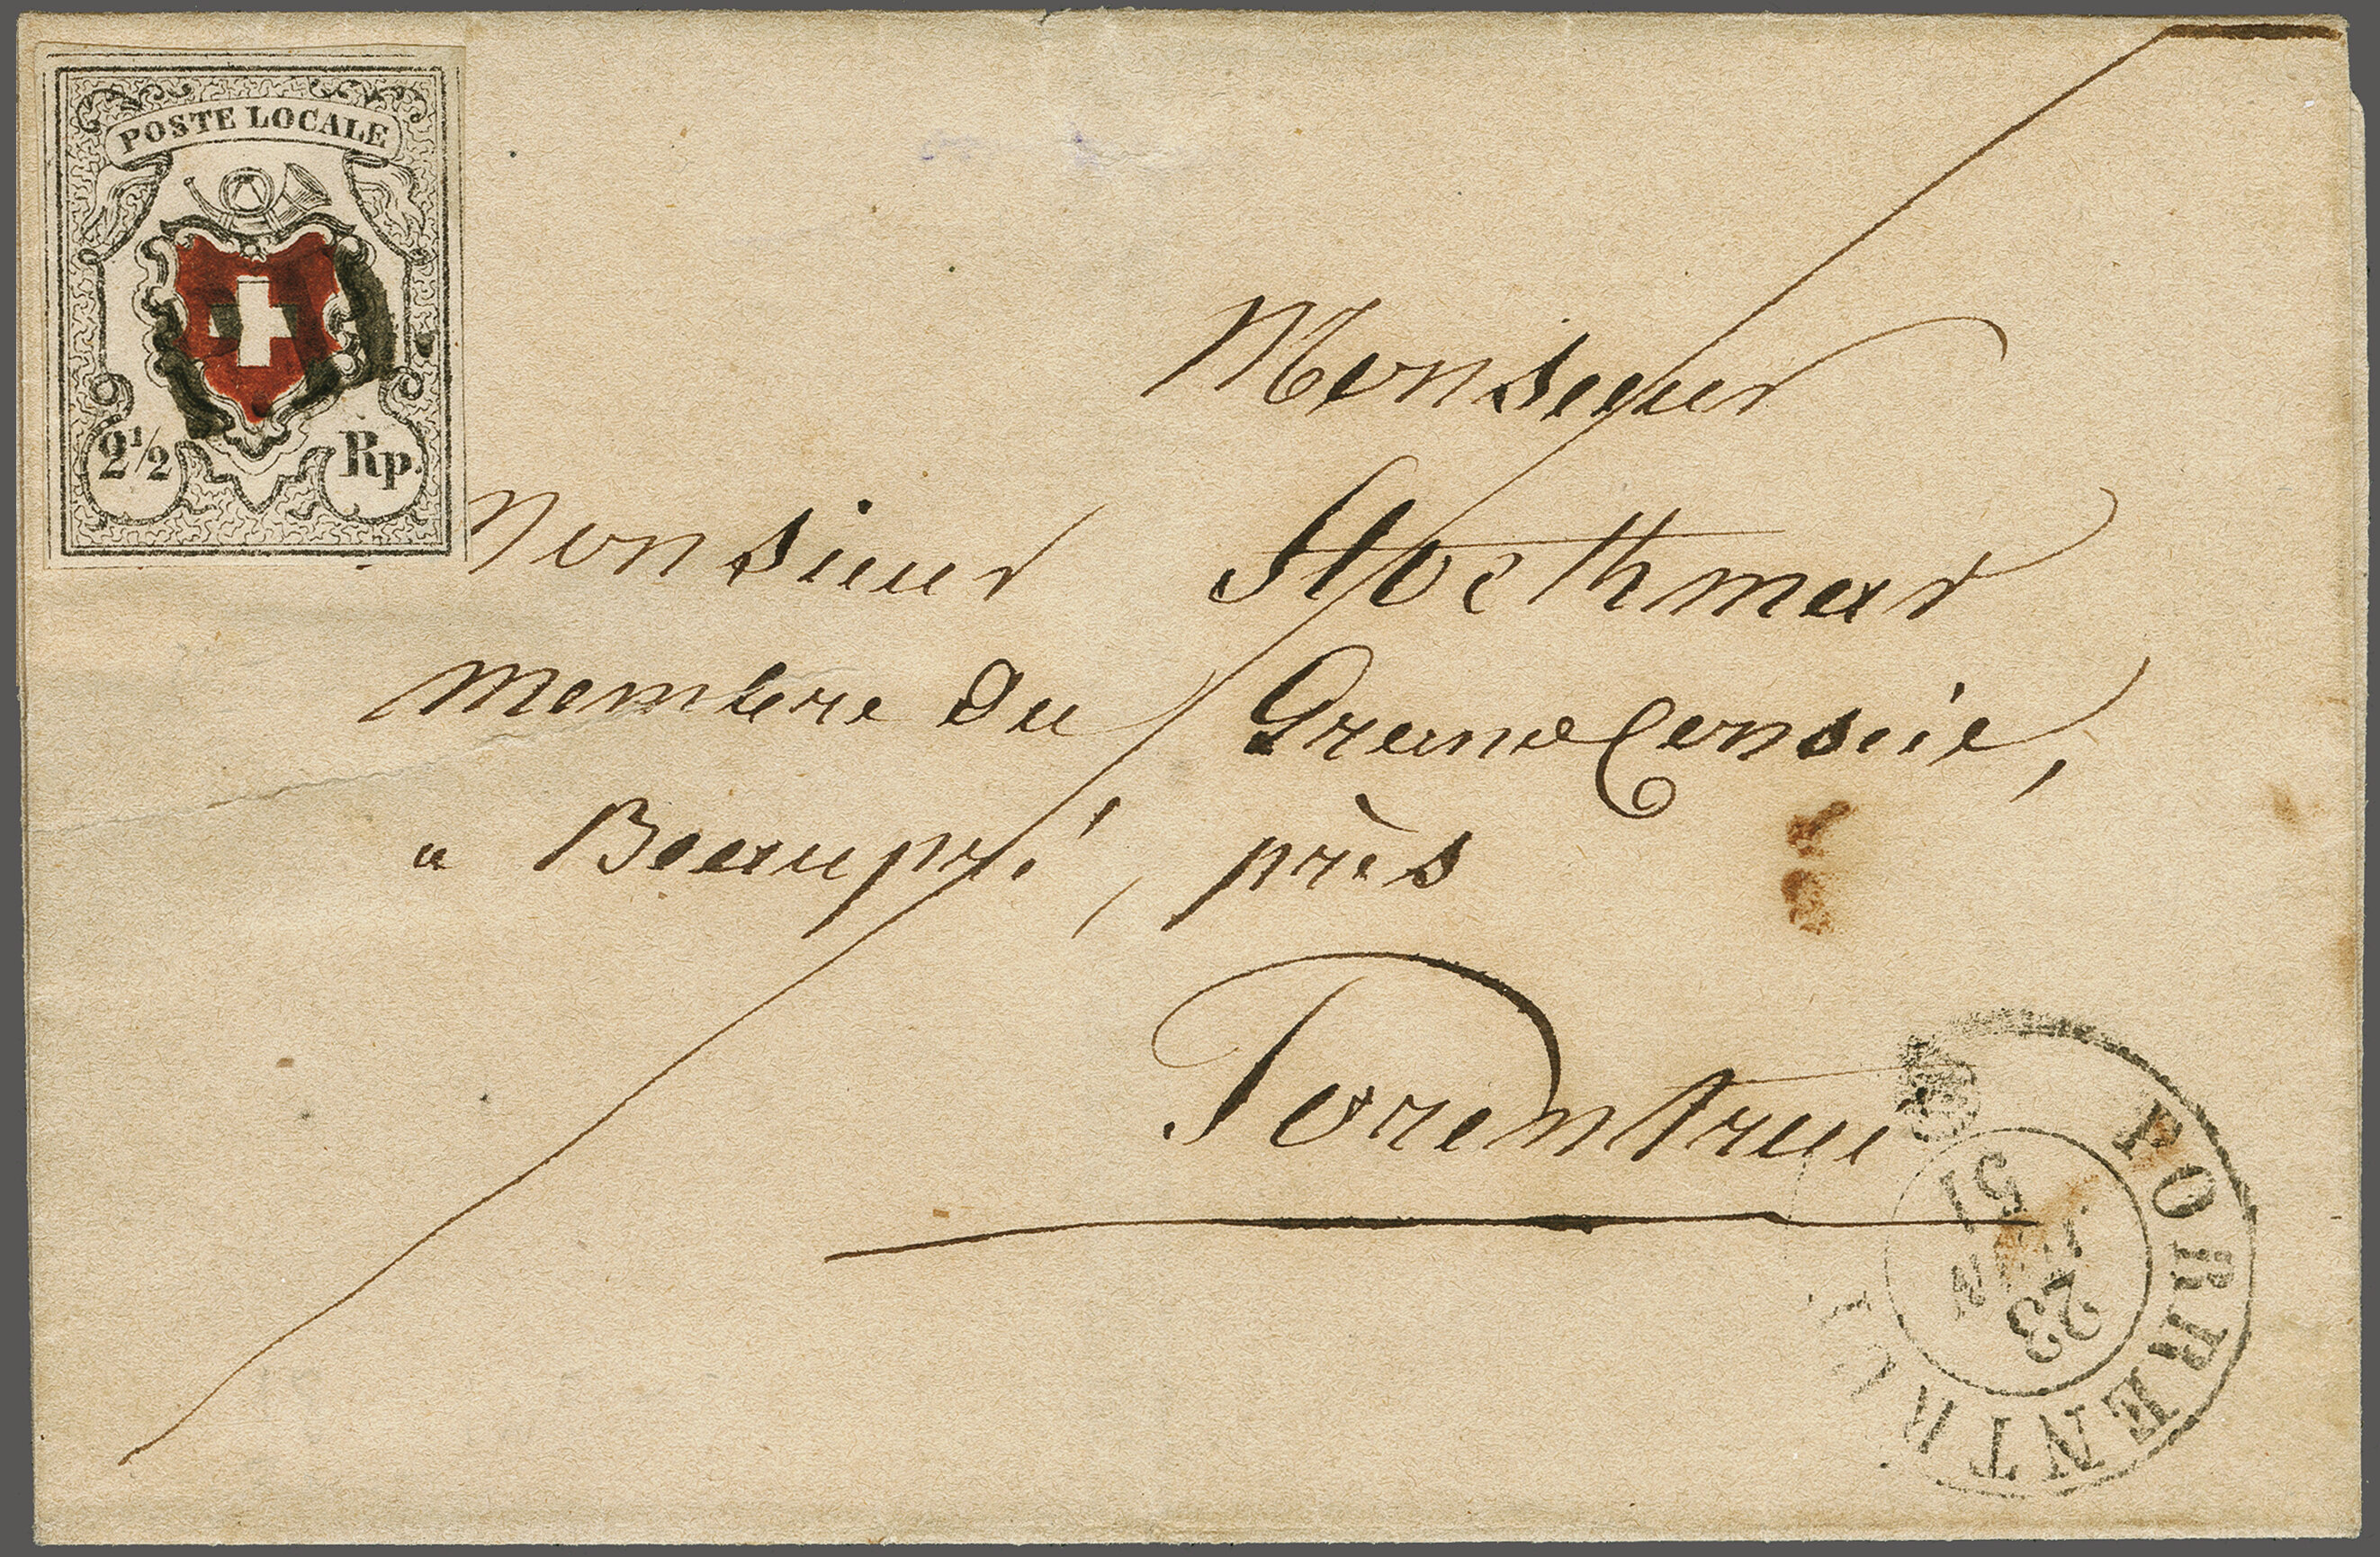 POSTE LOCALE
2½ Rp.
Monsieur
Monsieur Stockmar
membre du Grand Conseil,
a Beaupré, près
Porentrui
PORRENTRUI
23
51